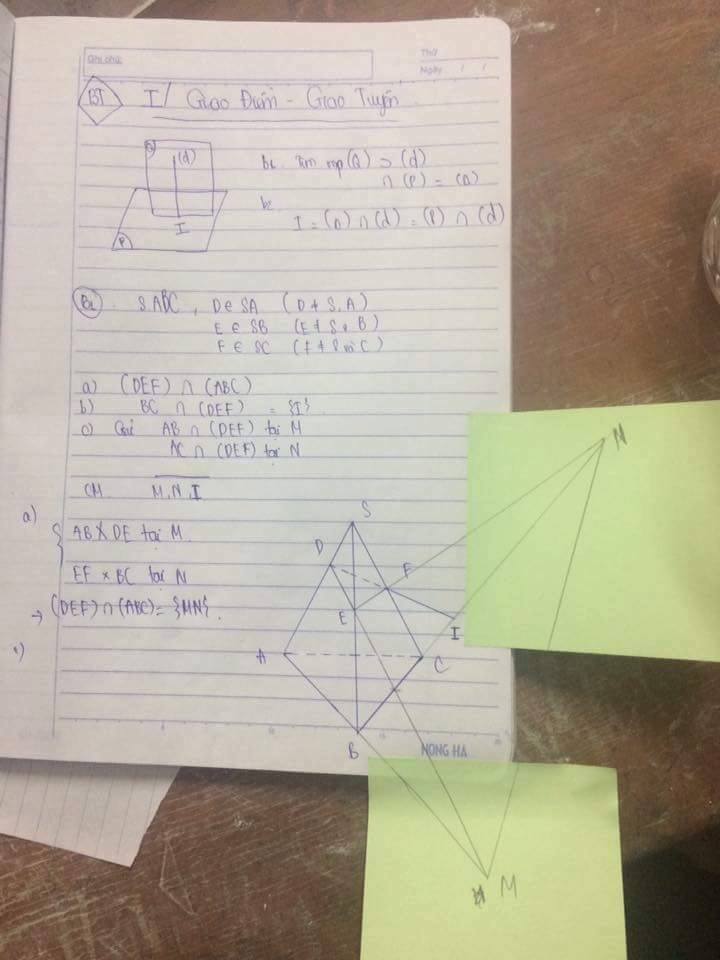 Ghi chú
Thứ
Ngày / /
BT I/ Giao Điểm - Giao Tuyến
Q
(d)
I
P
b1. Tìm mp(Q) ⊃ (d)
∩ (P) = (Δ)
b2
I = (Δ) ∩ (d) = (P) ∩ (d)
B1. S.ABC, D ∈ SA (D ≠ S, A)
E ∈ SB (E ≠ S, B)
F ∈ SC (F ≠ S và C)
a) (DEF) ∩ (ABC)
b) BC ∩ (DEF) = {I}
c) Gọi AB ∩ (DEF) tại M
AC ∩ (DEF) tại N
CM. M, N, I
a)
AB X DE tại M
EF x BC tại N
→ (DEF) ∩ (ABC) = {MN}.
S
D
F
E
I
A
C
B
N
M
NONG HA